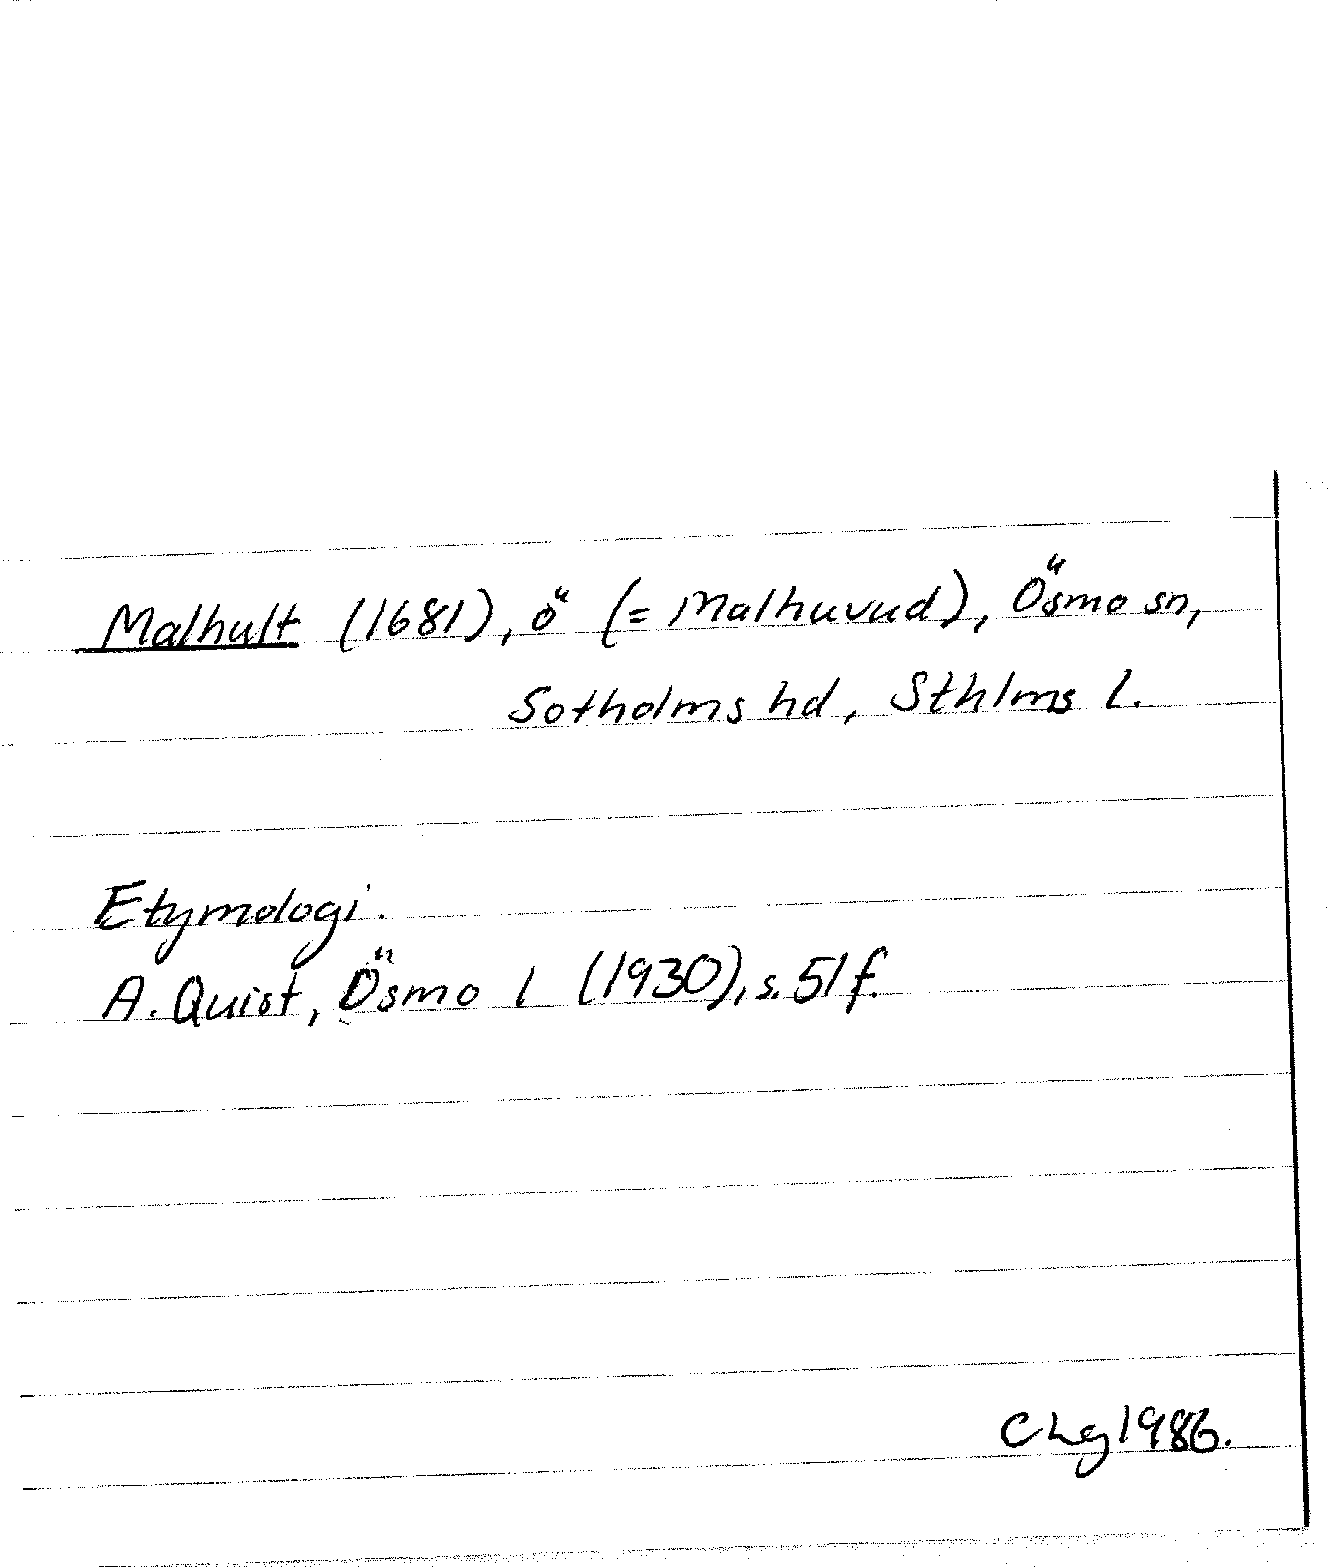 Malhult (1681), ö (= Malhuvud), Ösmo sn,
Sotholms hd, Sthlms l.
Etymologi.
A. Quist, Ösmo 1 (1930), s. 51 f.
CLg 1986.